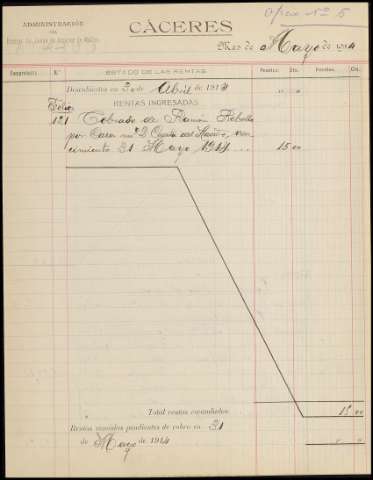 Nº 5
ADMINISTRACIÓN
CÁCERES
Mes de Mayo de 1914
Nº
ESTADO DE LAS RENTAS
Pesetas. Cts. Pesetas. Cts.
Descubiertos en 30 de Abril de 1914
RENTAS INGRESADAS
Folio
121 Cobrado de Ramón Rebollo
por Casa nº 2
cimiento 31 Mayo 1914 15 00
Total rentas 15 00
Rentas vencidas pendientes de cobro en 31
de Mayo de 1914